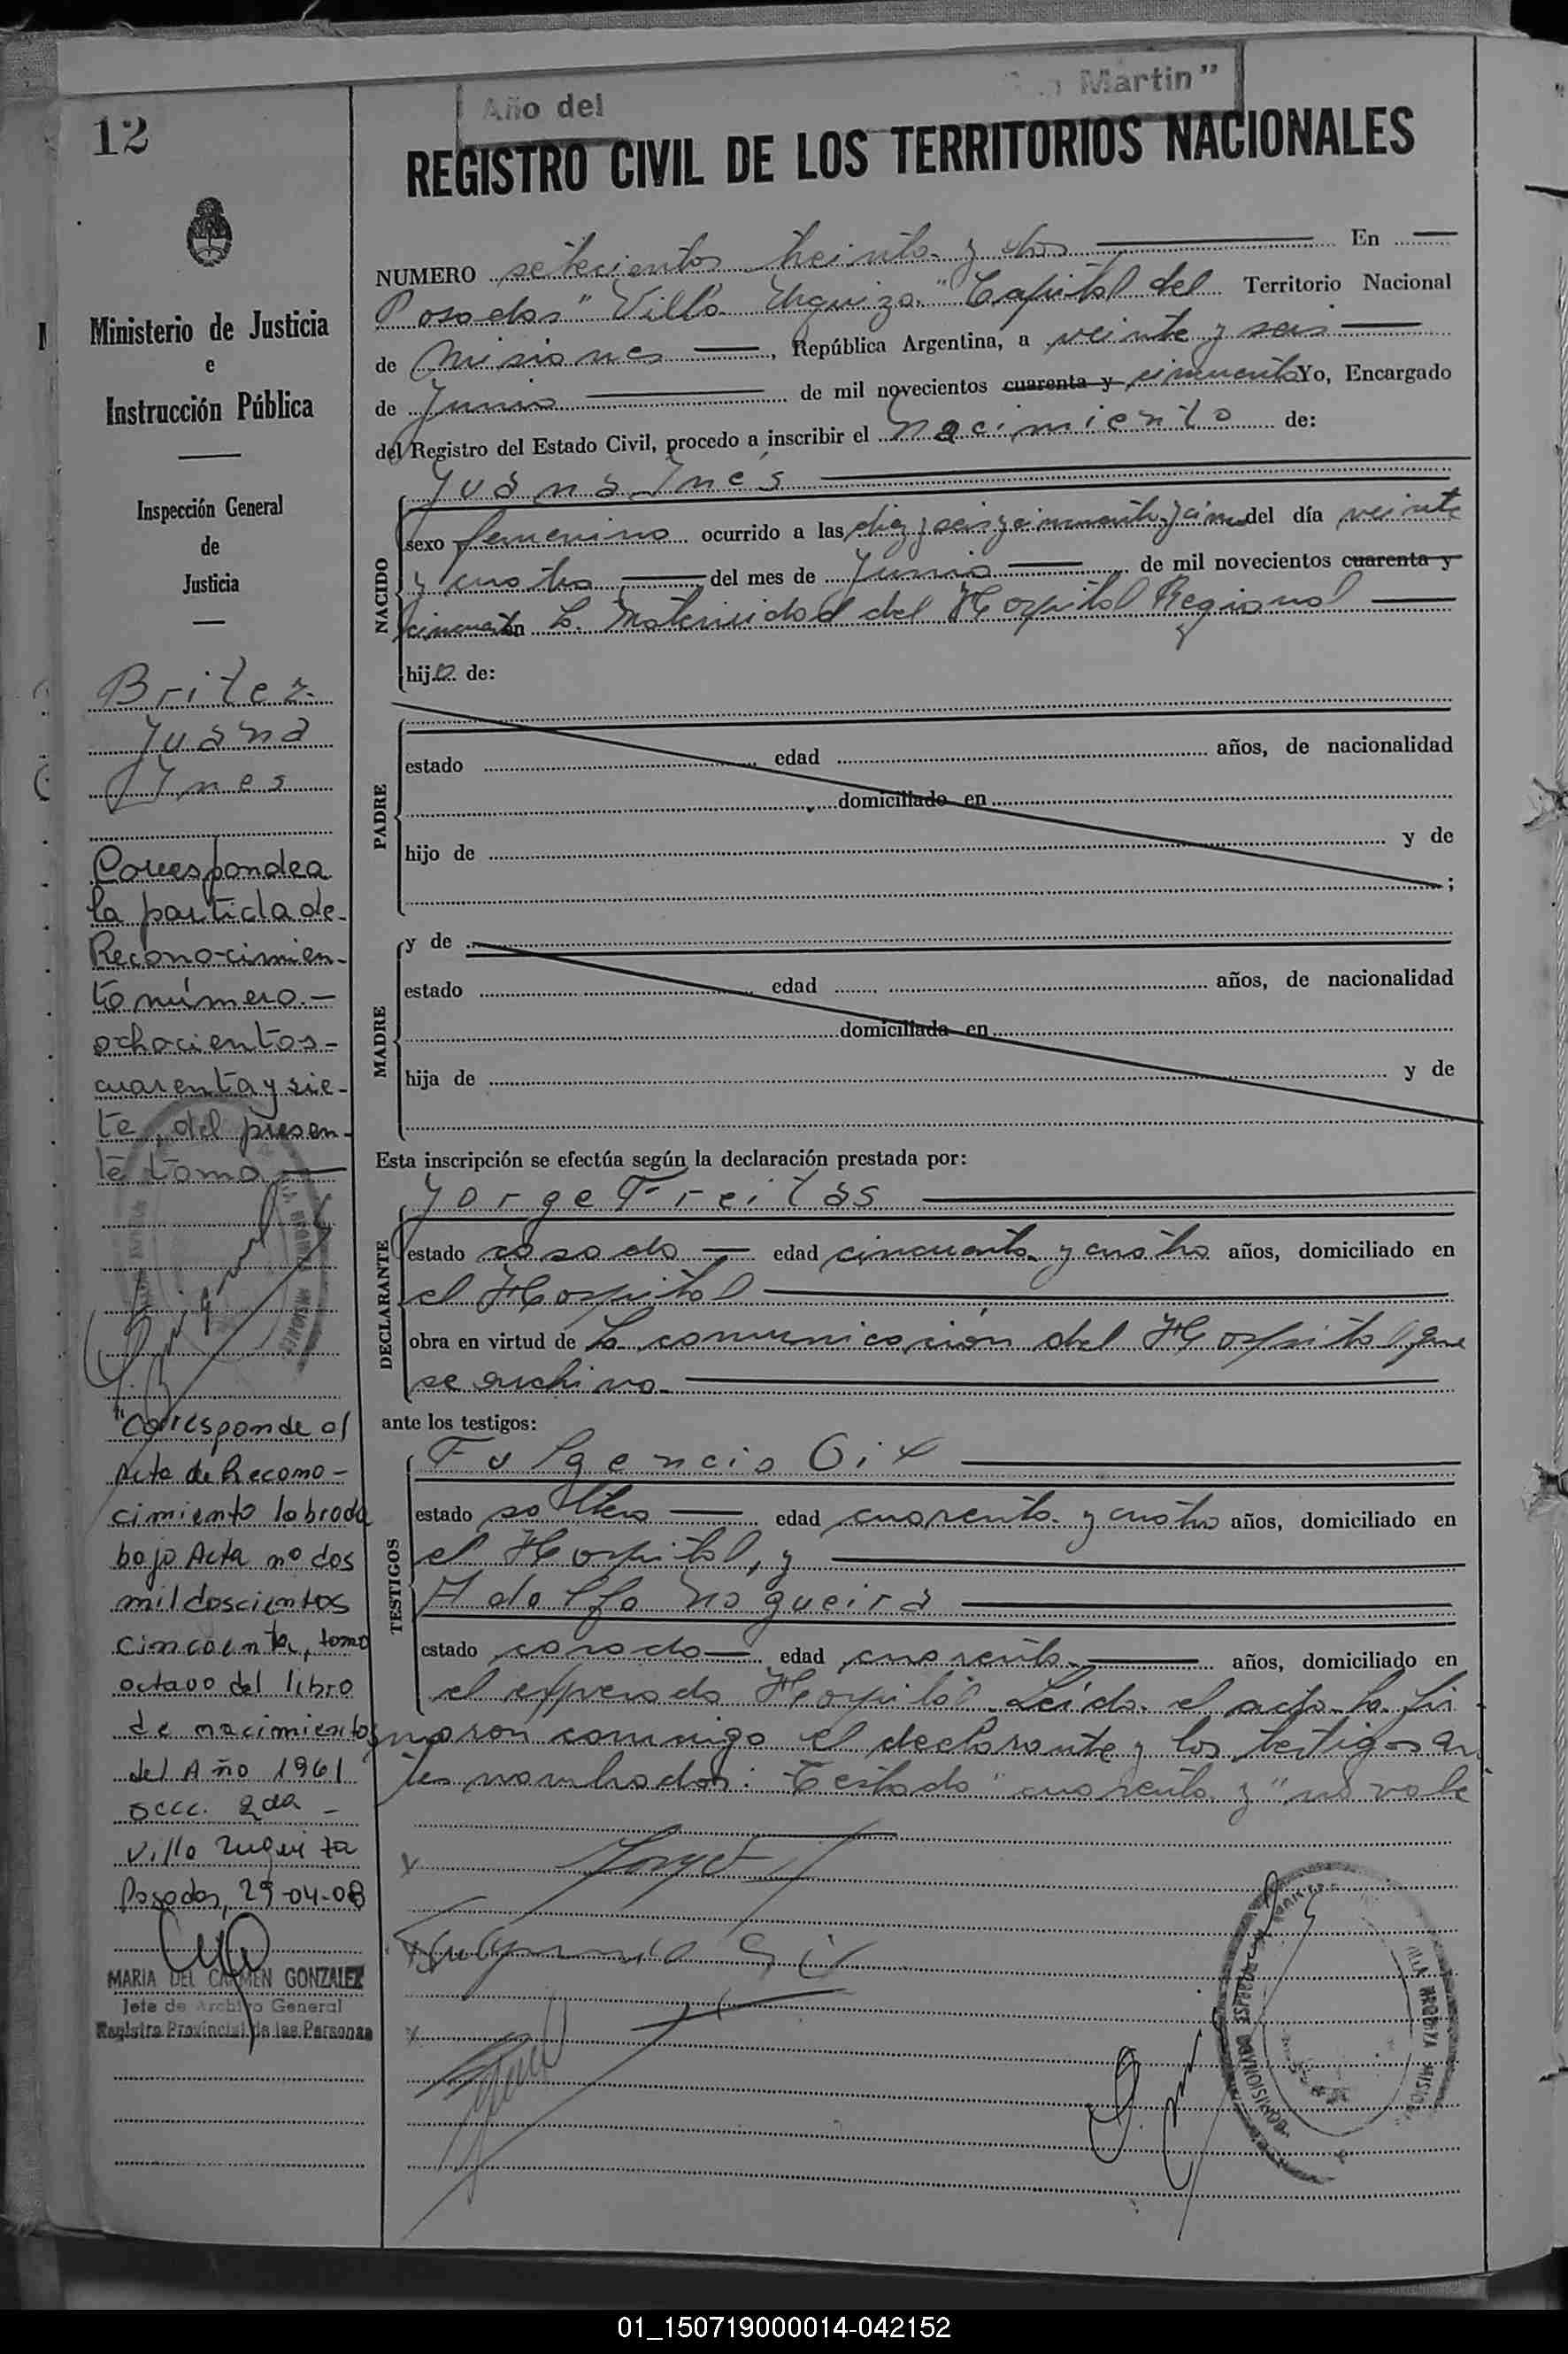 12
Año del
Martin"
REGISTRO CIVIL DE LOS TERRITORIOS NACIONALES
Ministerio de Justicia
e
Instrucción Pública
Inspección General
de
Justicia
Britez
Juana
Ynes
Corresponde a
la partida de
Reconocimien-
to número.—
ochocientos-
cuarenta y sie-
te, del presen-
te tomo —
"Corresponde al
Acta de Recono-
cimiento labrada
bajo Acta nº dos
mil doscientos
cincuenta, tomo
octavo del libro
de nacimientos
del Año 1961
secc. 2da -
Villa Urquiza
Posadas, 29-04-08
MARIA DEL CARMEN GONZALEZ
Jefe de Archivo General
Registro Provincial de las Personas
NUMERO setecientos treinta y dos En
Posadas "Villa Urquiza" Capital del Territorio Nacional
de Misiones, República Argentina, a veinte y seis
de Junio de mil novecientos cuarenta y cincuenta Yo, Encargado
del Registro del Estado Civil, procedo a inscribir el Nacimiento de:
NACIDO
Juana Inés
sexo femenino ocurrido a las diez y seis y cincuenta y cinco del día veinte
y cuatro del mes de Junio de mil novecientos cuarenta y
cincuenta en la Maternidad del Hospital Regional
hija de:
PADRE
estado edad años, de nacionalidad
domiciliado en
hijo de y de
;
MADRE
y de
estado edad años, de nacionalidad
domiciliada en
hija de y de
Esta inscripción se efectúa según la declaración prestada por:
DECLARANTE
Jorge Freitas
estado casado edad cincuenta y cuatro años, domiciliado en
el Hospital
obra en virtud de la comunicación del Hospital que
se archiva
ante los testigos:
TESTIGOS
Fulgencio Gil
estado soltero edad cuarenta y cuatro años, domiciliado en
el Hospital, y
Adolfo Nogueira
estado casado edad cuarenta años, domiciliado en
el expresado Hospital. Leída el acta la fir
maron conmigo el declarante y los testigos an
tes nombrados: Testado "cuarenta y" no vale
Fulgencio Gil
01_150719000014-042152